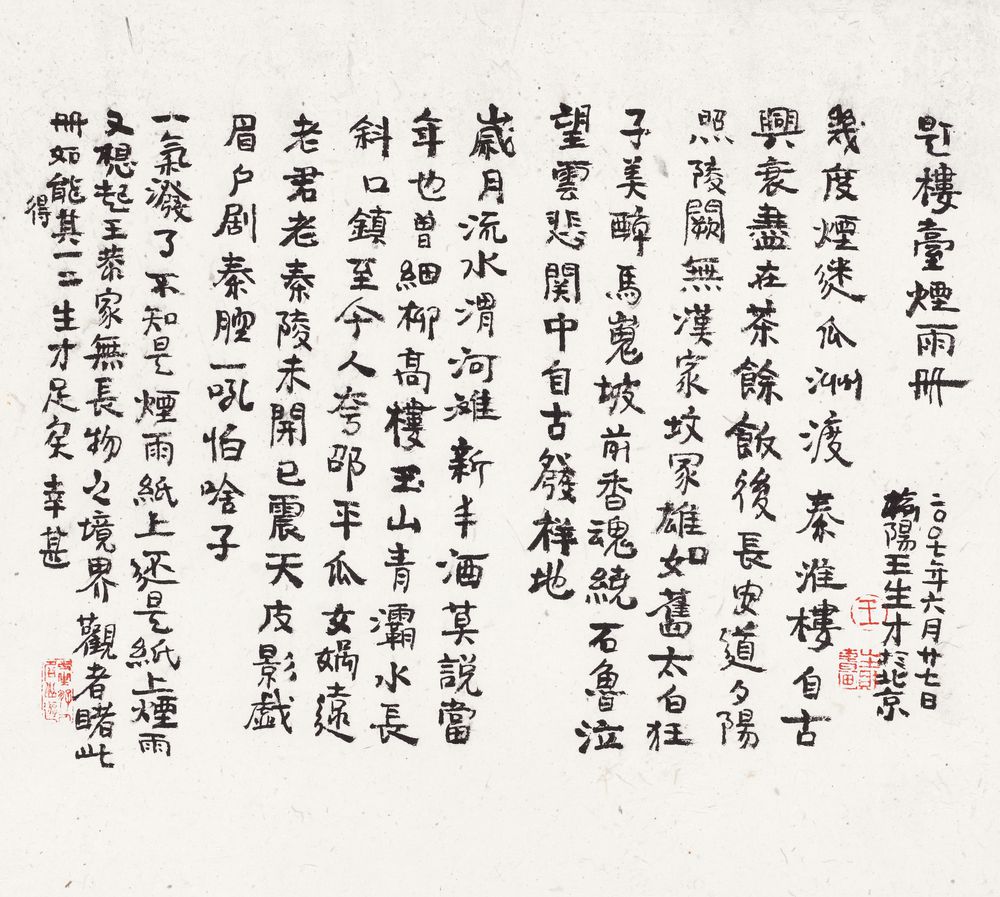 題樓臺煙雨冊
二〇〇七年六月廿七日
櫟陽王生才於北京
幾度煙迷瓜洲渡 秦淮樓自古
興衰盡在茶餘飯後長安道夕陽
照陵闕無漢家墳冢雄如舊太白狂
子美醉馬嵬坡前香魂繞石魯泣
望雲悲関中自古發祥地
歲月流水渭河灘新丰酒莫說當
年也曾細柳高樓玉山青灞水長
斜口鎮至今人夸邵平瓜女媧遠
老君老秦陵未開已震天皮影戲
眉户剧秦腔一吼怕啥子
一氣潑了不知是煙雨紙上还是紙上煙雨
又想起王恭家無長物之境界觀者睹此
冊如能得其一二生才足矣幸甚